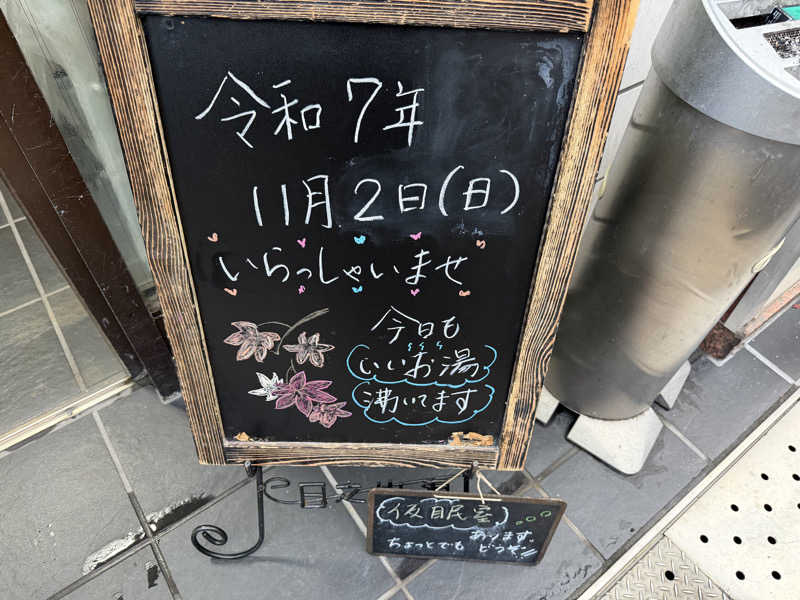 令和7年
11月2日(日)
いらっしゃいませ
今日も
いいお湯
沸いてます
仮眠室
あります。
ちょっとでも どうぞ!!